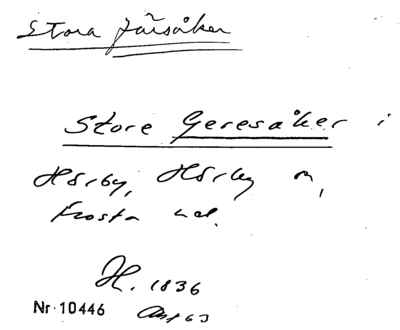 Stora Järsåker
Store Geresåker i
Hörby, Hörby sn,
Frosta hd.
H. 1836
Nr 10446